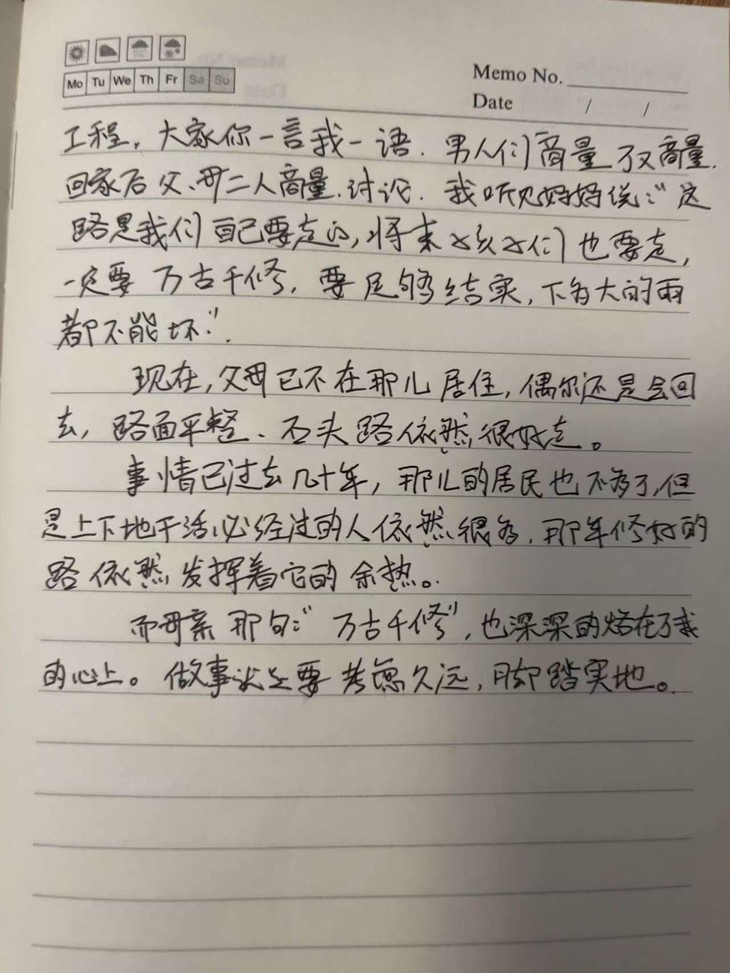 Mo Tu We Th Fr Sa Su
Memo No.
Date / /
工程，大家你一言我一语．男人们商量了又商量．
回家后父、母二人商量．讨论．我听见妈妈说：“这
路是我们自己要走的，将来女孩女们也要走，
一定要万古千修，要足够结实，下多大的雨
都不能坏”．
现在，父母已不在那儿居住，偶尔还是会回
去，路面平整、石头路依然很好走。
事情已过去几十年，那儿的居民也不多了，但
是上下地干活必经过的人依然很多，那年修好的
路依然发挥着它的余热。
而母亲那句：“万古千修”，也深深的烙在了我
的心上。做事就是要考虑久远，脚踏实地。